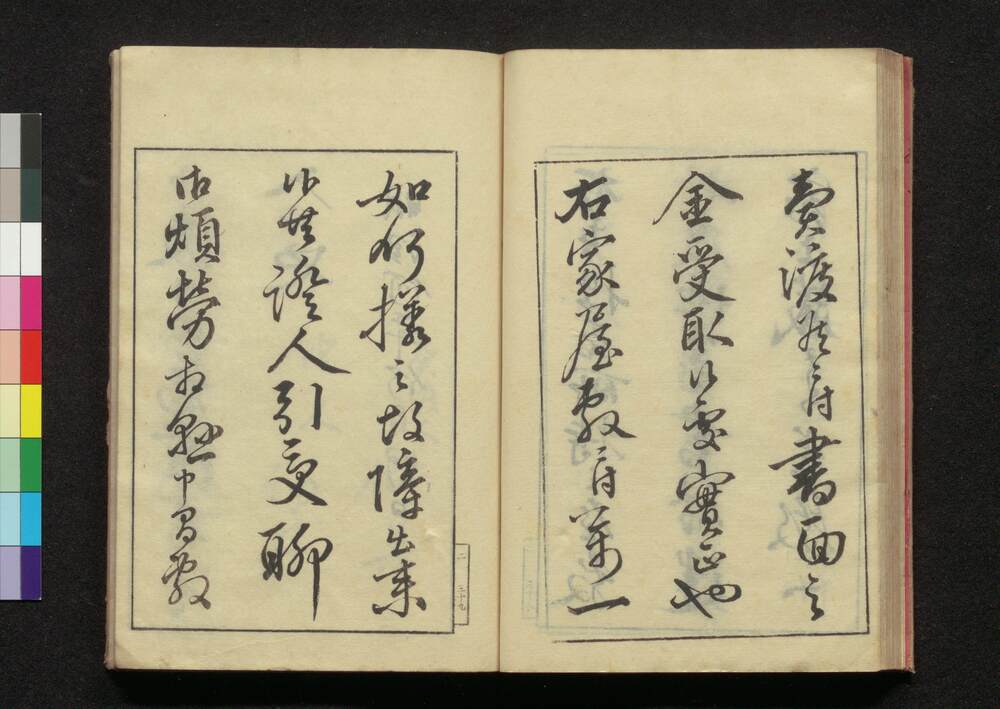 賣渡然ニ付書面之
金受取候處實正也
右家屋敷ニ付萬一
如何様之故障出来
候共證人引受聊
御煩勞相懸申間敷
二 三十九